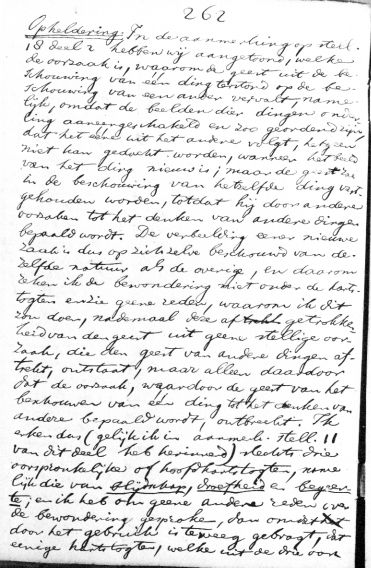 262
Opheldering. In de aanmerking op stell.
18 deel 2 hebben wij aangetoond, welke
de oorzaak is, waarom de geest uit de be-
schouwing van één ding terstond op de be-
schouwing van een ander vervalt, name-
lijk, omdat de beelden dier dingen onder-
ling aaneengeschakeld en zoo geordend zijn,
dat het eene uit het andere volgt, hetgeen
niet kan gedacht worden, wanneer het beeld
van het ding nieuw is; maar de geest zal
in de beschouwing van hetzelfde ding vast-
gehouden worden, totdat hij door andere
oorzaken tot het denken van andere dingen
bepaald wordt. De verbeelding eener nieuwe
zaak is dus op zich zelve beschouwd van de-
zelfde natuur als de overige, en daarom
reken ik de bewondering niet onder de harts-
togten en zie geene reden, waarom ik dit
zou doen, nademaal deze afgetrokken-
heid van den geest uit geene stellige oor-
zaak, die den geest van andere dingen af-
trekt, ontstaat, maar alleen daardoor
dat de oorzaak, waardoor de geest van het
beschouwen van één ding tot het denken van
andere bepaald wordt, ontbreekt. Ik
erken dus (gelijk ik in aanmerk. stell. 11
van dit deel heb herinnerd) slechts drie
oorspronkelijke of hoofdhartstogten, name-
lijk die van blijdschap, droefheid en begeer-
te; en ik heb om geene andere reden over
de bewondering gesproken, dan omdat het
door het gebruik is teweeg gebragt, dat
eenige hartstogten, welke uit de drie oor-